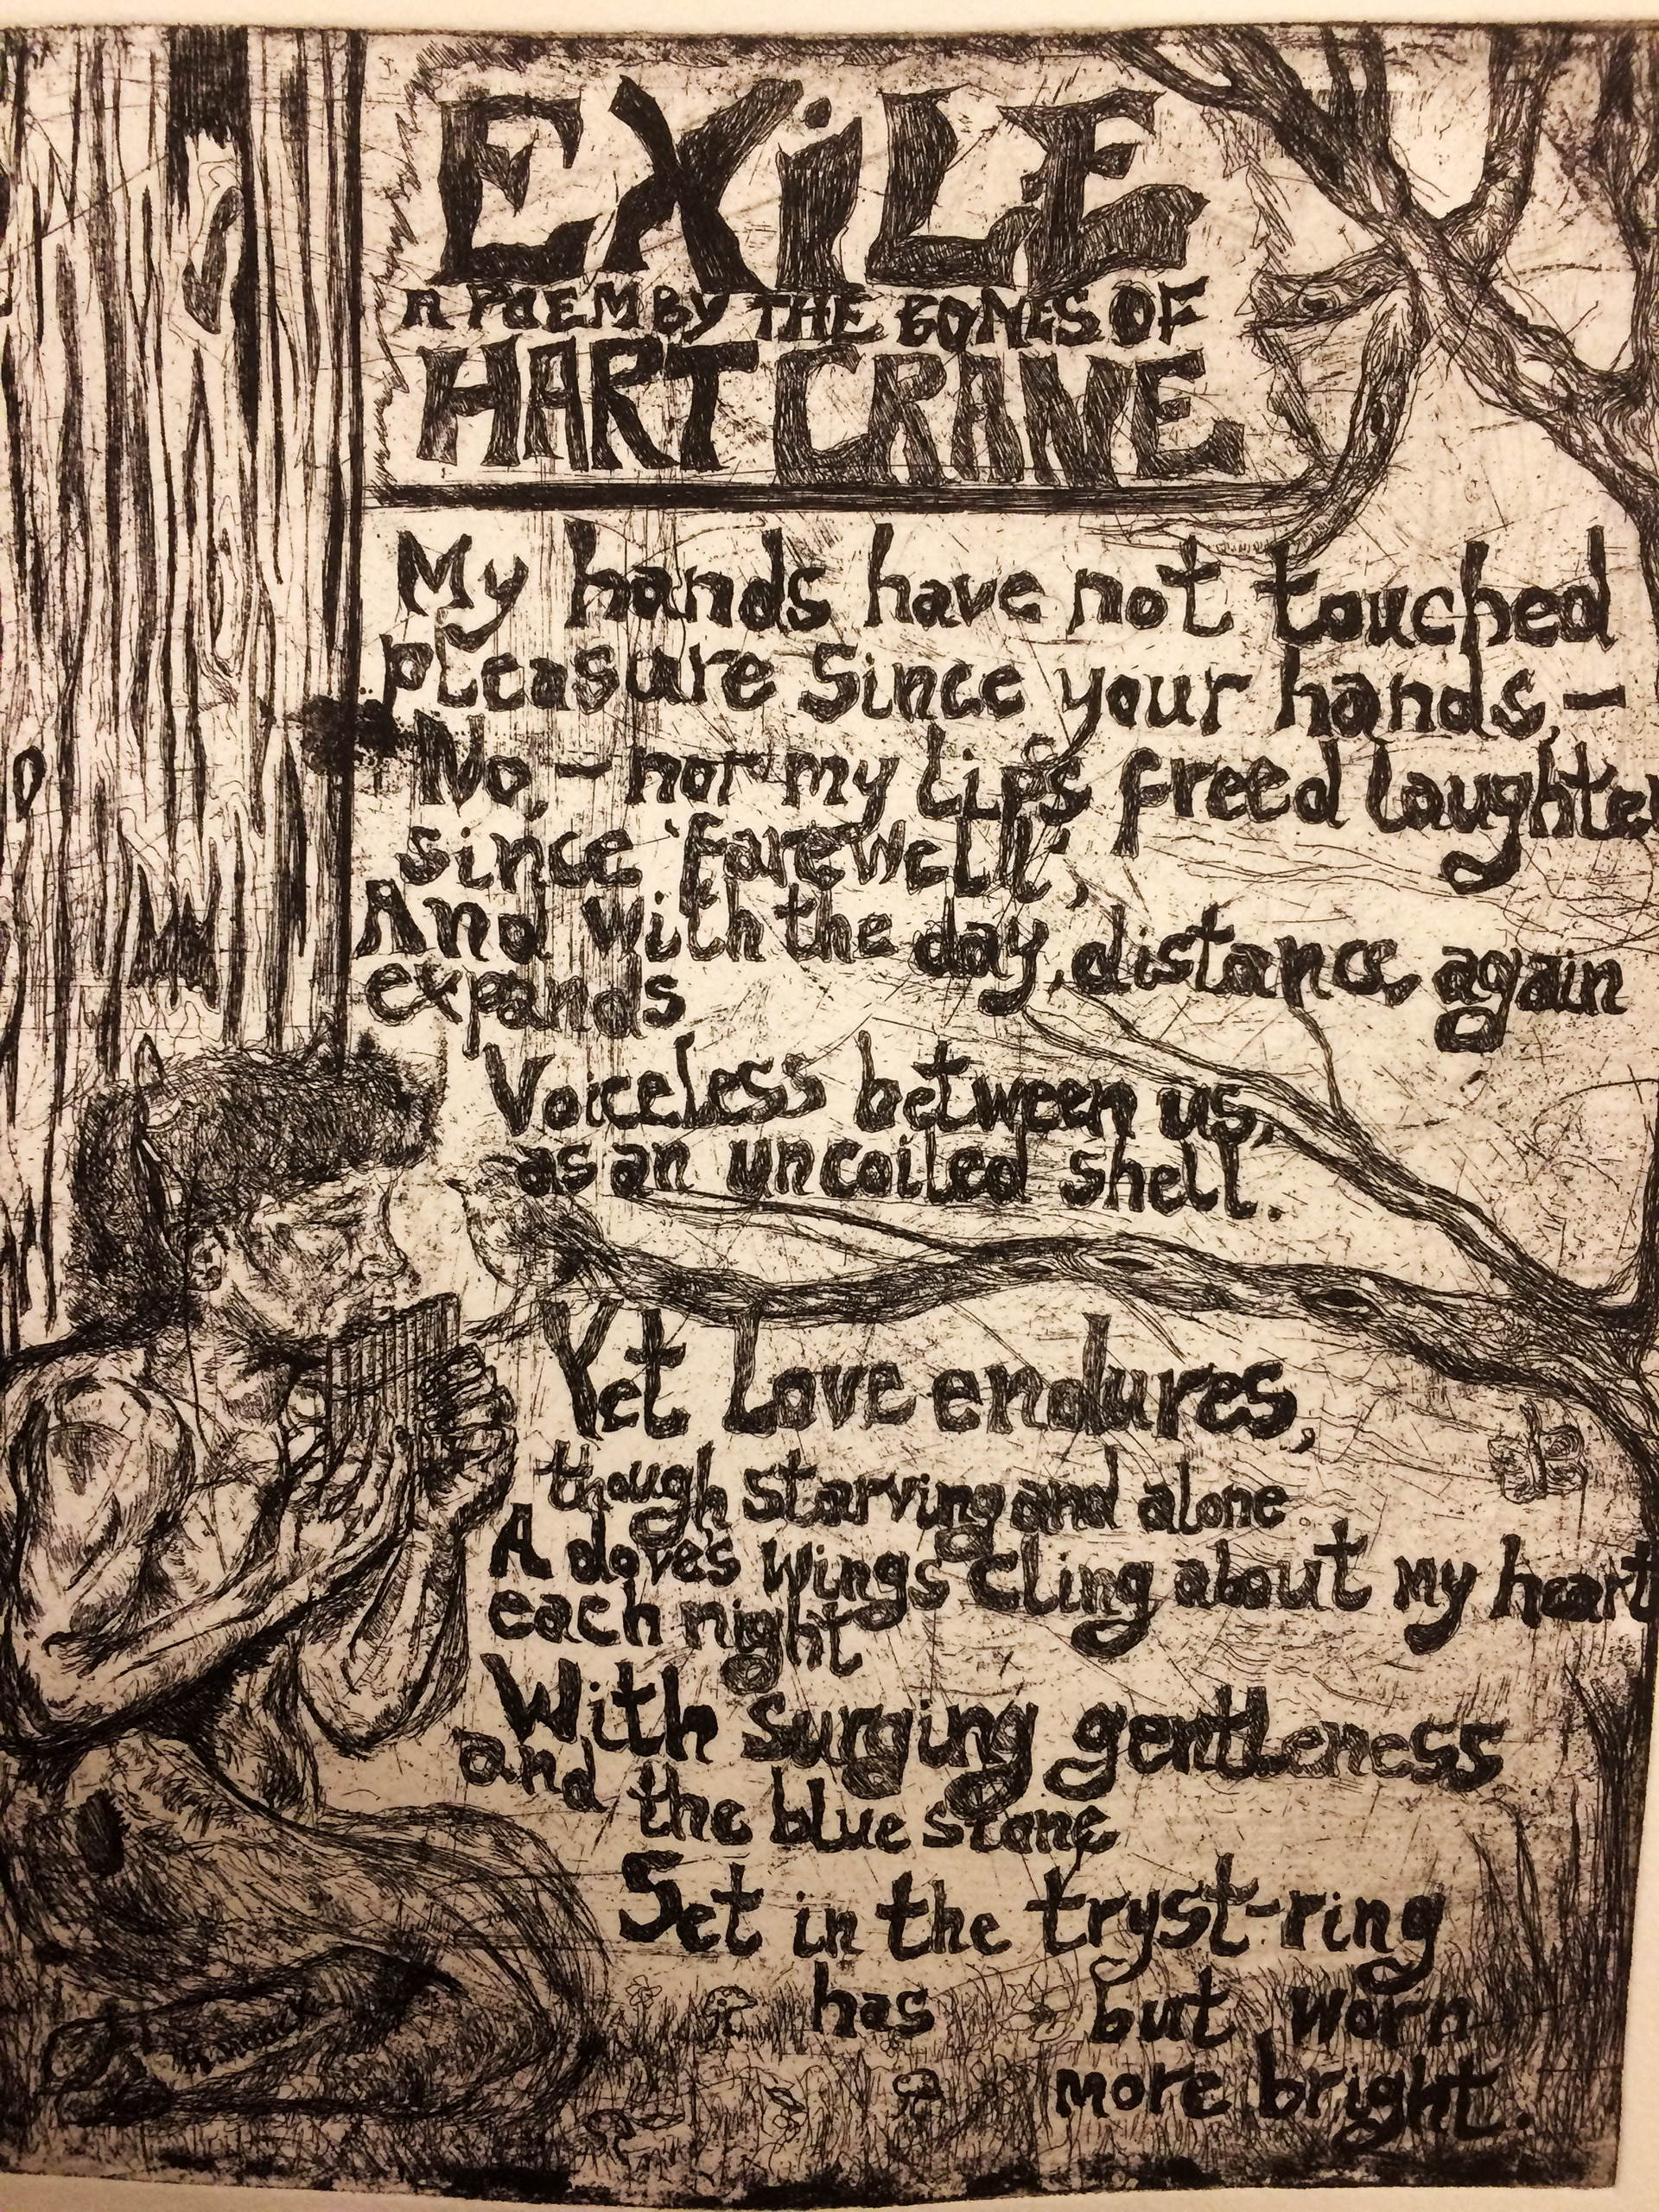 EXiLE
A POEM BY THE BONES OF
HART CRANE
My hands have not touched
pleasure Since your hands, –
No, – nor my lips freed laughter
since 'farewell',
And with the day, distance again
expands
Voiceless between us,
as an uncoiled shell.
Yet Love endures,
though starving and alone.
A dove's wings cling about my heart
each night
With surging gentleness
and the blue stone
Set in the tryst-ring
has but worn
more bright.